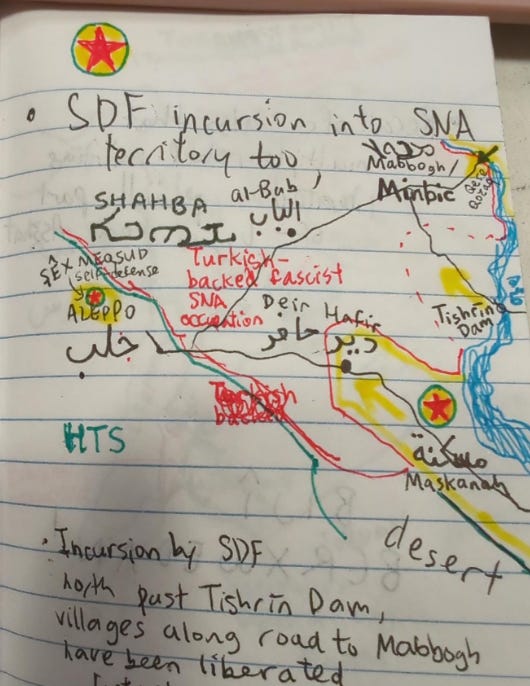 • SDF incursion into SNA
territory too,
Mabbogh/
Minbic
Qere
Qozaq
al-Bab
الباب
SHAHBA
ŞÊX MEQSUD
self-defense
ALEPPO
حلب
Turkish-
backed fascist
SNA
occuation
Deir Hafir
دير حافر
Tishrīn
Dam
Turkish
backed
HTS
مسكنة
Maskanah
desert
• Incursion by SDF
north past Tishrīn Dam,
villages along road to Mabbogh
have been liberated